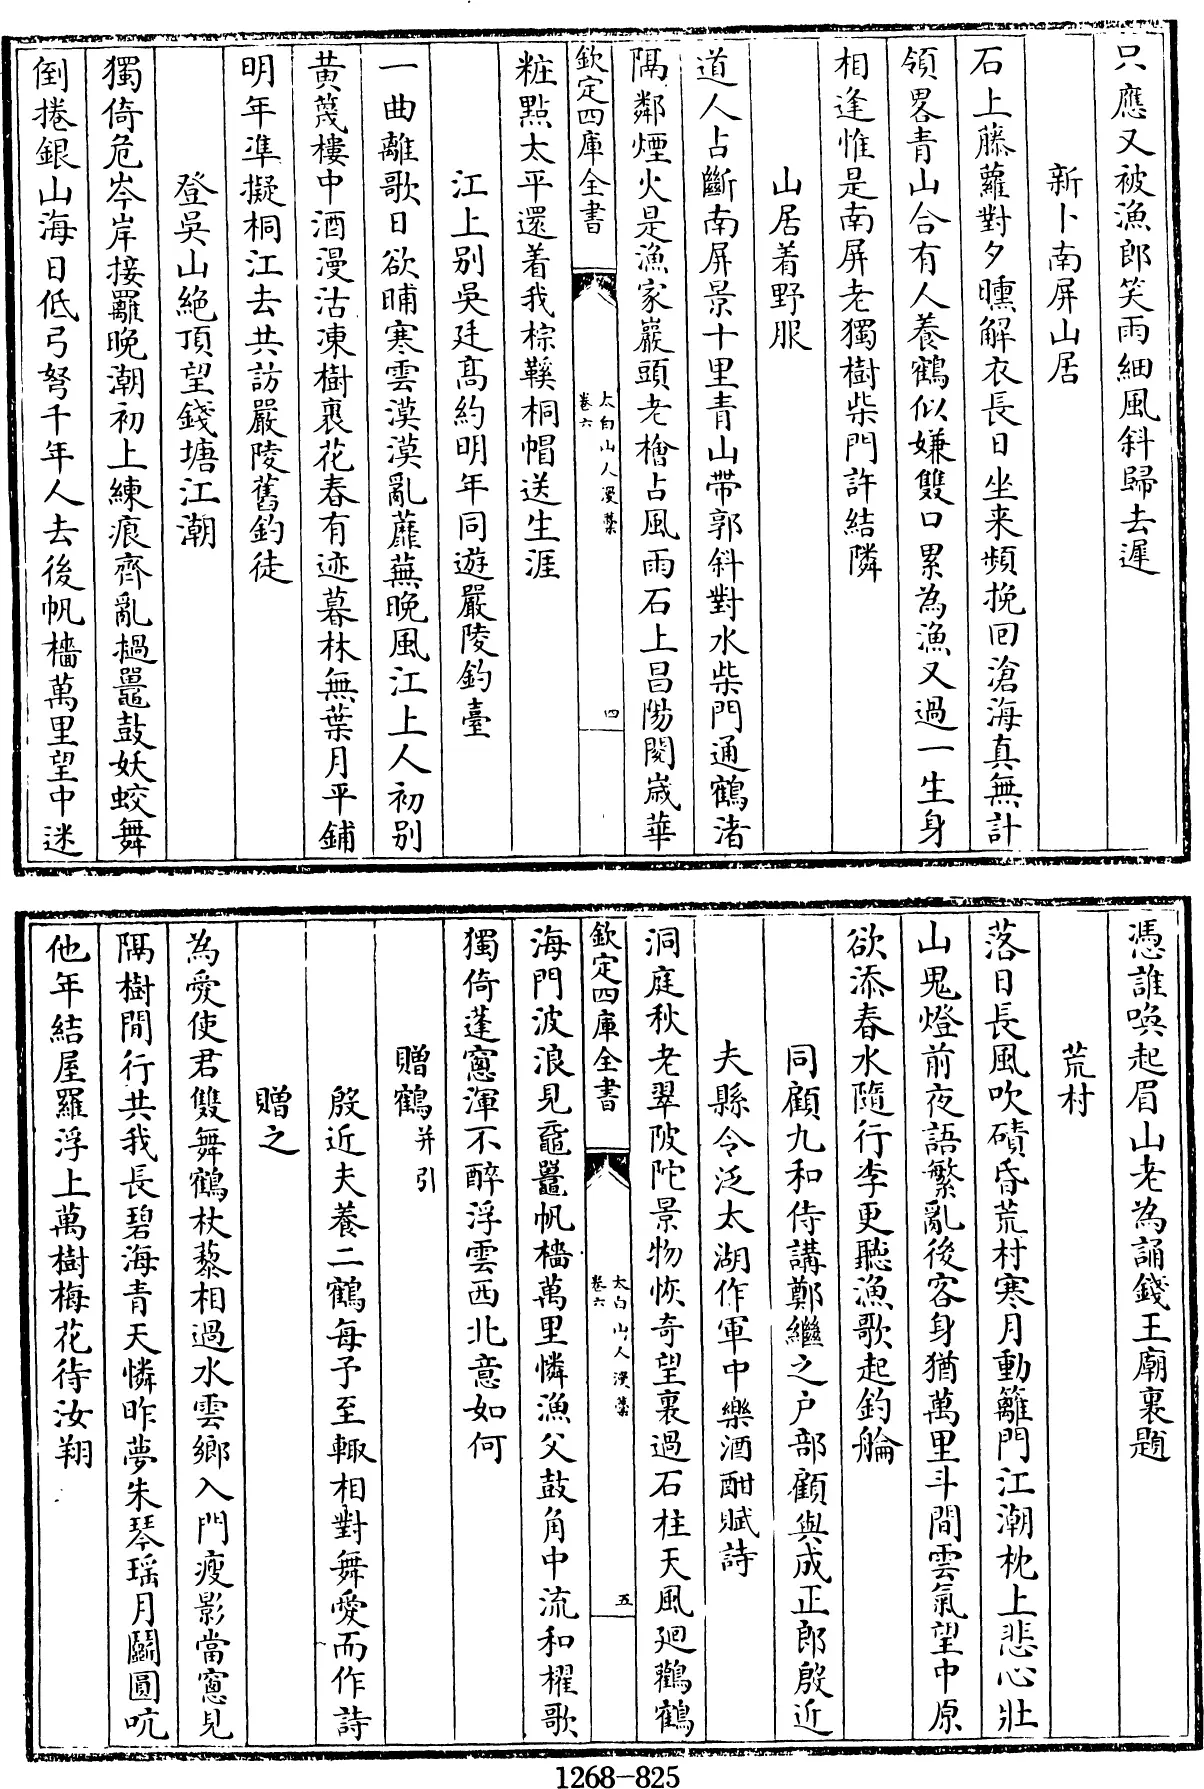 只應又被漁郎笑雨細風斜歸去遲
新卜南屏山居
石上藤蘿對夕曛解衣長日坐来頻挽回滄海真無計
領畧青山合有人養鶴似嫌雙口累為漁又過一生身
相逢惟是南屏老獨樹柴門許結隣
山居着野服
道人占斷南屏景十里青山帶郭斜對水柴門通鶴渚
隔鄰煙火是漁家巖頭老檜占風雨石上昌陽閱歲華
欽定四庫全書
太白山人漫藁
卷六
四
粧點太平還着我棕鞵桐帽送生涯
江上别吳廷髙約明年同遊嚴陵釣臺
一曲離歌日欲晡寒雲漠漠亂蘼蕪晚風江上人初别
黄篾樓中酒漫沽凍樹裏花春有迹暮林無葉月平鋪
明年凖擬桐江去共訪嚴陵舊釣徒
登吳山絶頂望錢塘江潮
獨倚危岑岸接䍦晚潮初上練痕齊亂撾鼉鼓妖蛟舞
倒捲銀山海日低弓弩千年人去後帆檣萬里望中迷
憑誰喚起眉山老為誦錢王廟裏題
荒村
落日長風吹磧昏荒村寒月動籬門江潮枕上悲心壯
山鬼燈前夜語繁亂後客身猶萬里斗間雲氣望中原
欲添春水隨行李更聽漁歌起釣艑
同顧九和侍講鄭繼之户部顧與成正郎殷近
夫縣令泛太湖作軍中樂酒酣賦詩
洞庭秋老翠陂陀景物恢奇望裏過石柱天風廻鸛鶴
欽定四庫全書
太白山人漫藁
卷六
五
海門波浪見黿鼉帆檣萬里憐漁父鼓角中流和櫂歌
獨倚蓬窻渾不醉浮雲西北意如何
贈鶴并引
殷近夫養二鶴每予至輙相對舞愛而作詩
贈之
為愛使君雙舞鶴杖藜相過水雲鄉入門瘦影當窻見
隔樹閒行共我長碧海青天憐昨夢朱琴瑶月鬭圓吭
他年結屋羅浮上萬樹梅花待汝翔
1268-825